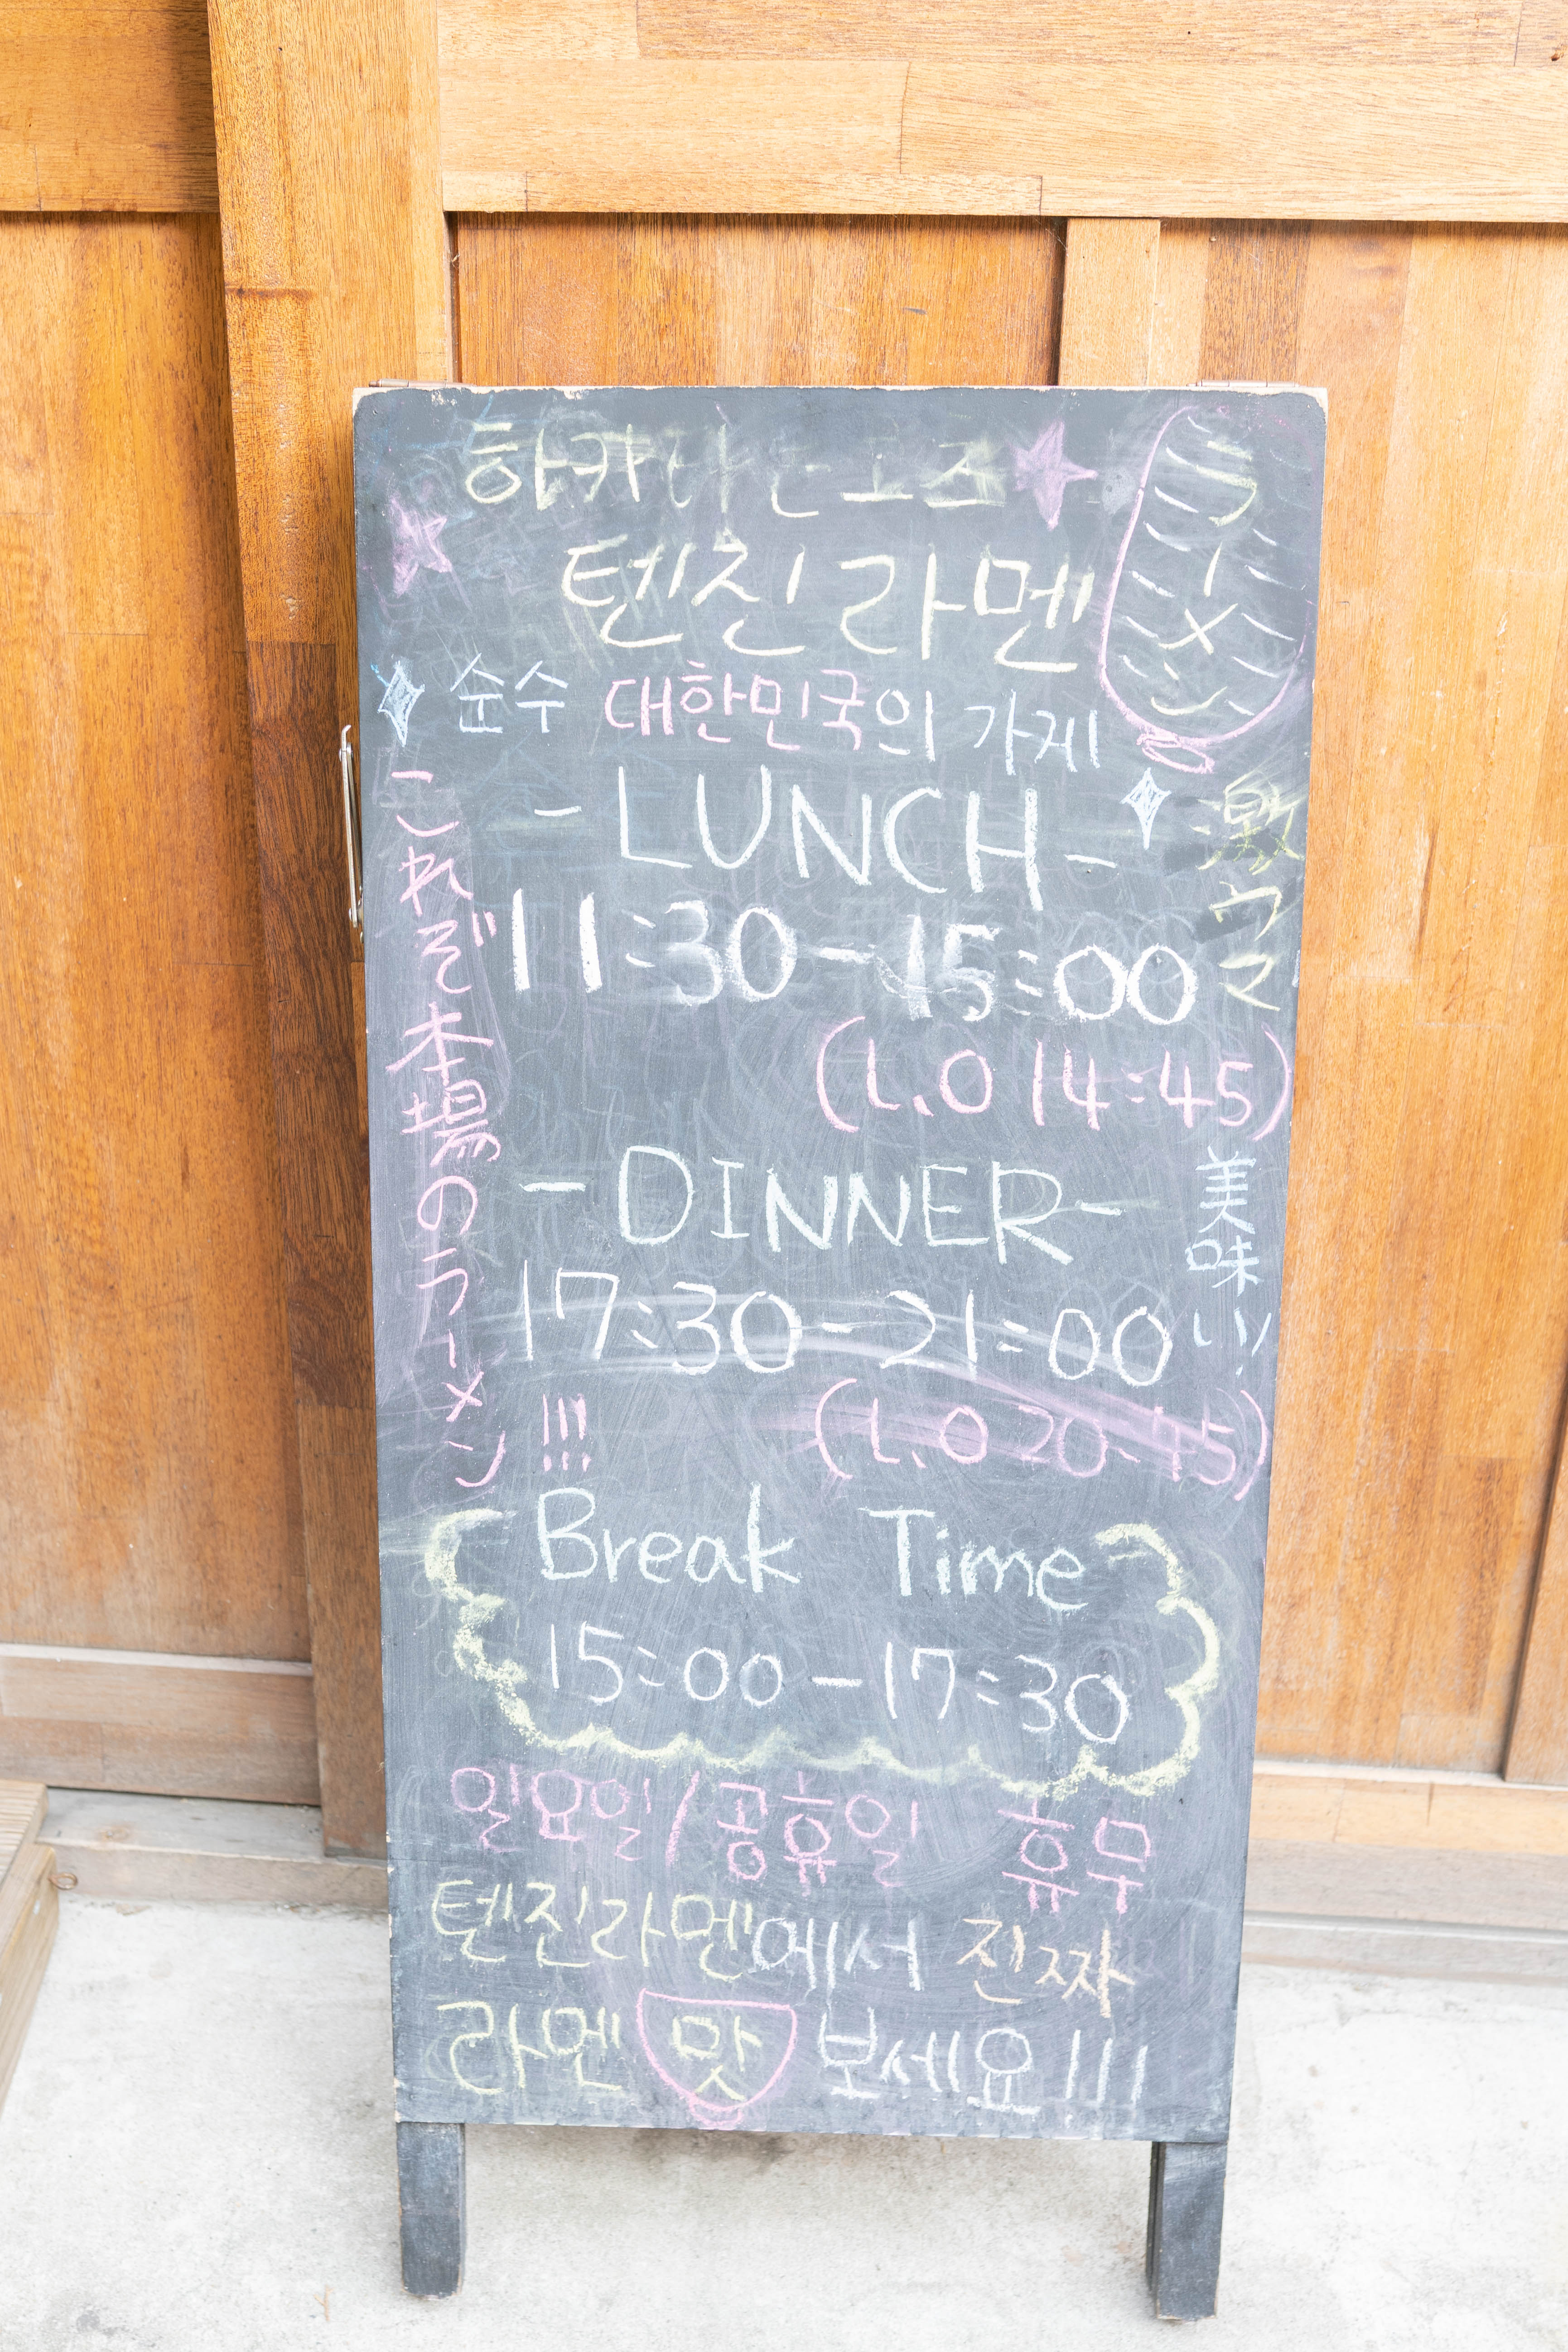 하카타 톤코츠
텐진 라멘
ラーメン
순수 대한민국의 가게
これぞ本場のラーメン!!!
激ウマ
- LUNCH -
11:30 - 15:00
(L.O 14:45)
- DINNER -
17:30 - 21:00
(L.O 20:45)
美味いッ!
Break Time
15:00 - 17:30
일요일/공휴일 휴무
텐진라멘에서 진짜
라멘 맛 보세요!!!